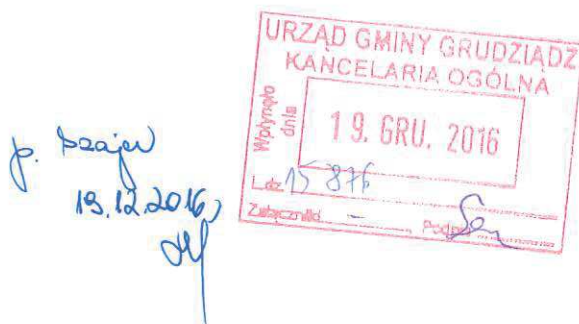 URZĄD GMINY GRUDZIĄDZ
KANCELARIA OGÓLNA
Wpłynęło
dnia
19. GRU. 2016
L.dz. 15 876
Załączniki — Podpis
p. Szajer
19.12.2016